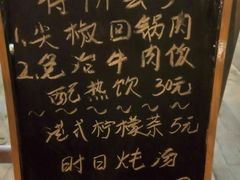 1.尖椒回锅肉
2.免治牛肉饭
配热饮 30元
~~~~~~~~
港式柠檬茶 5元
时日炖汤